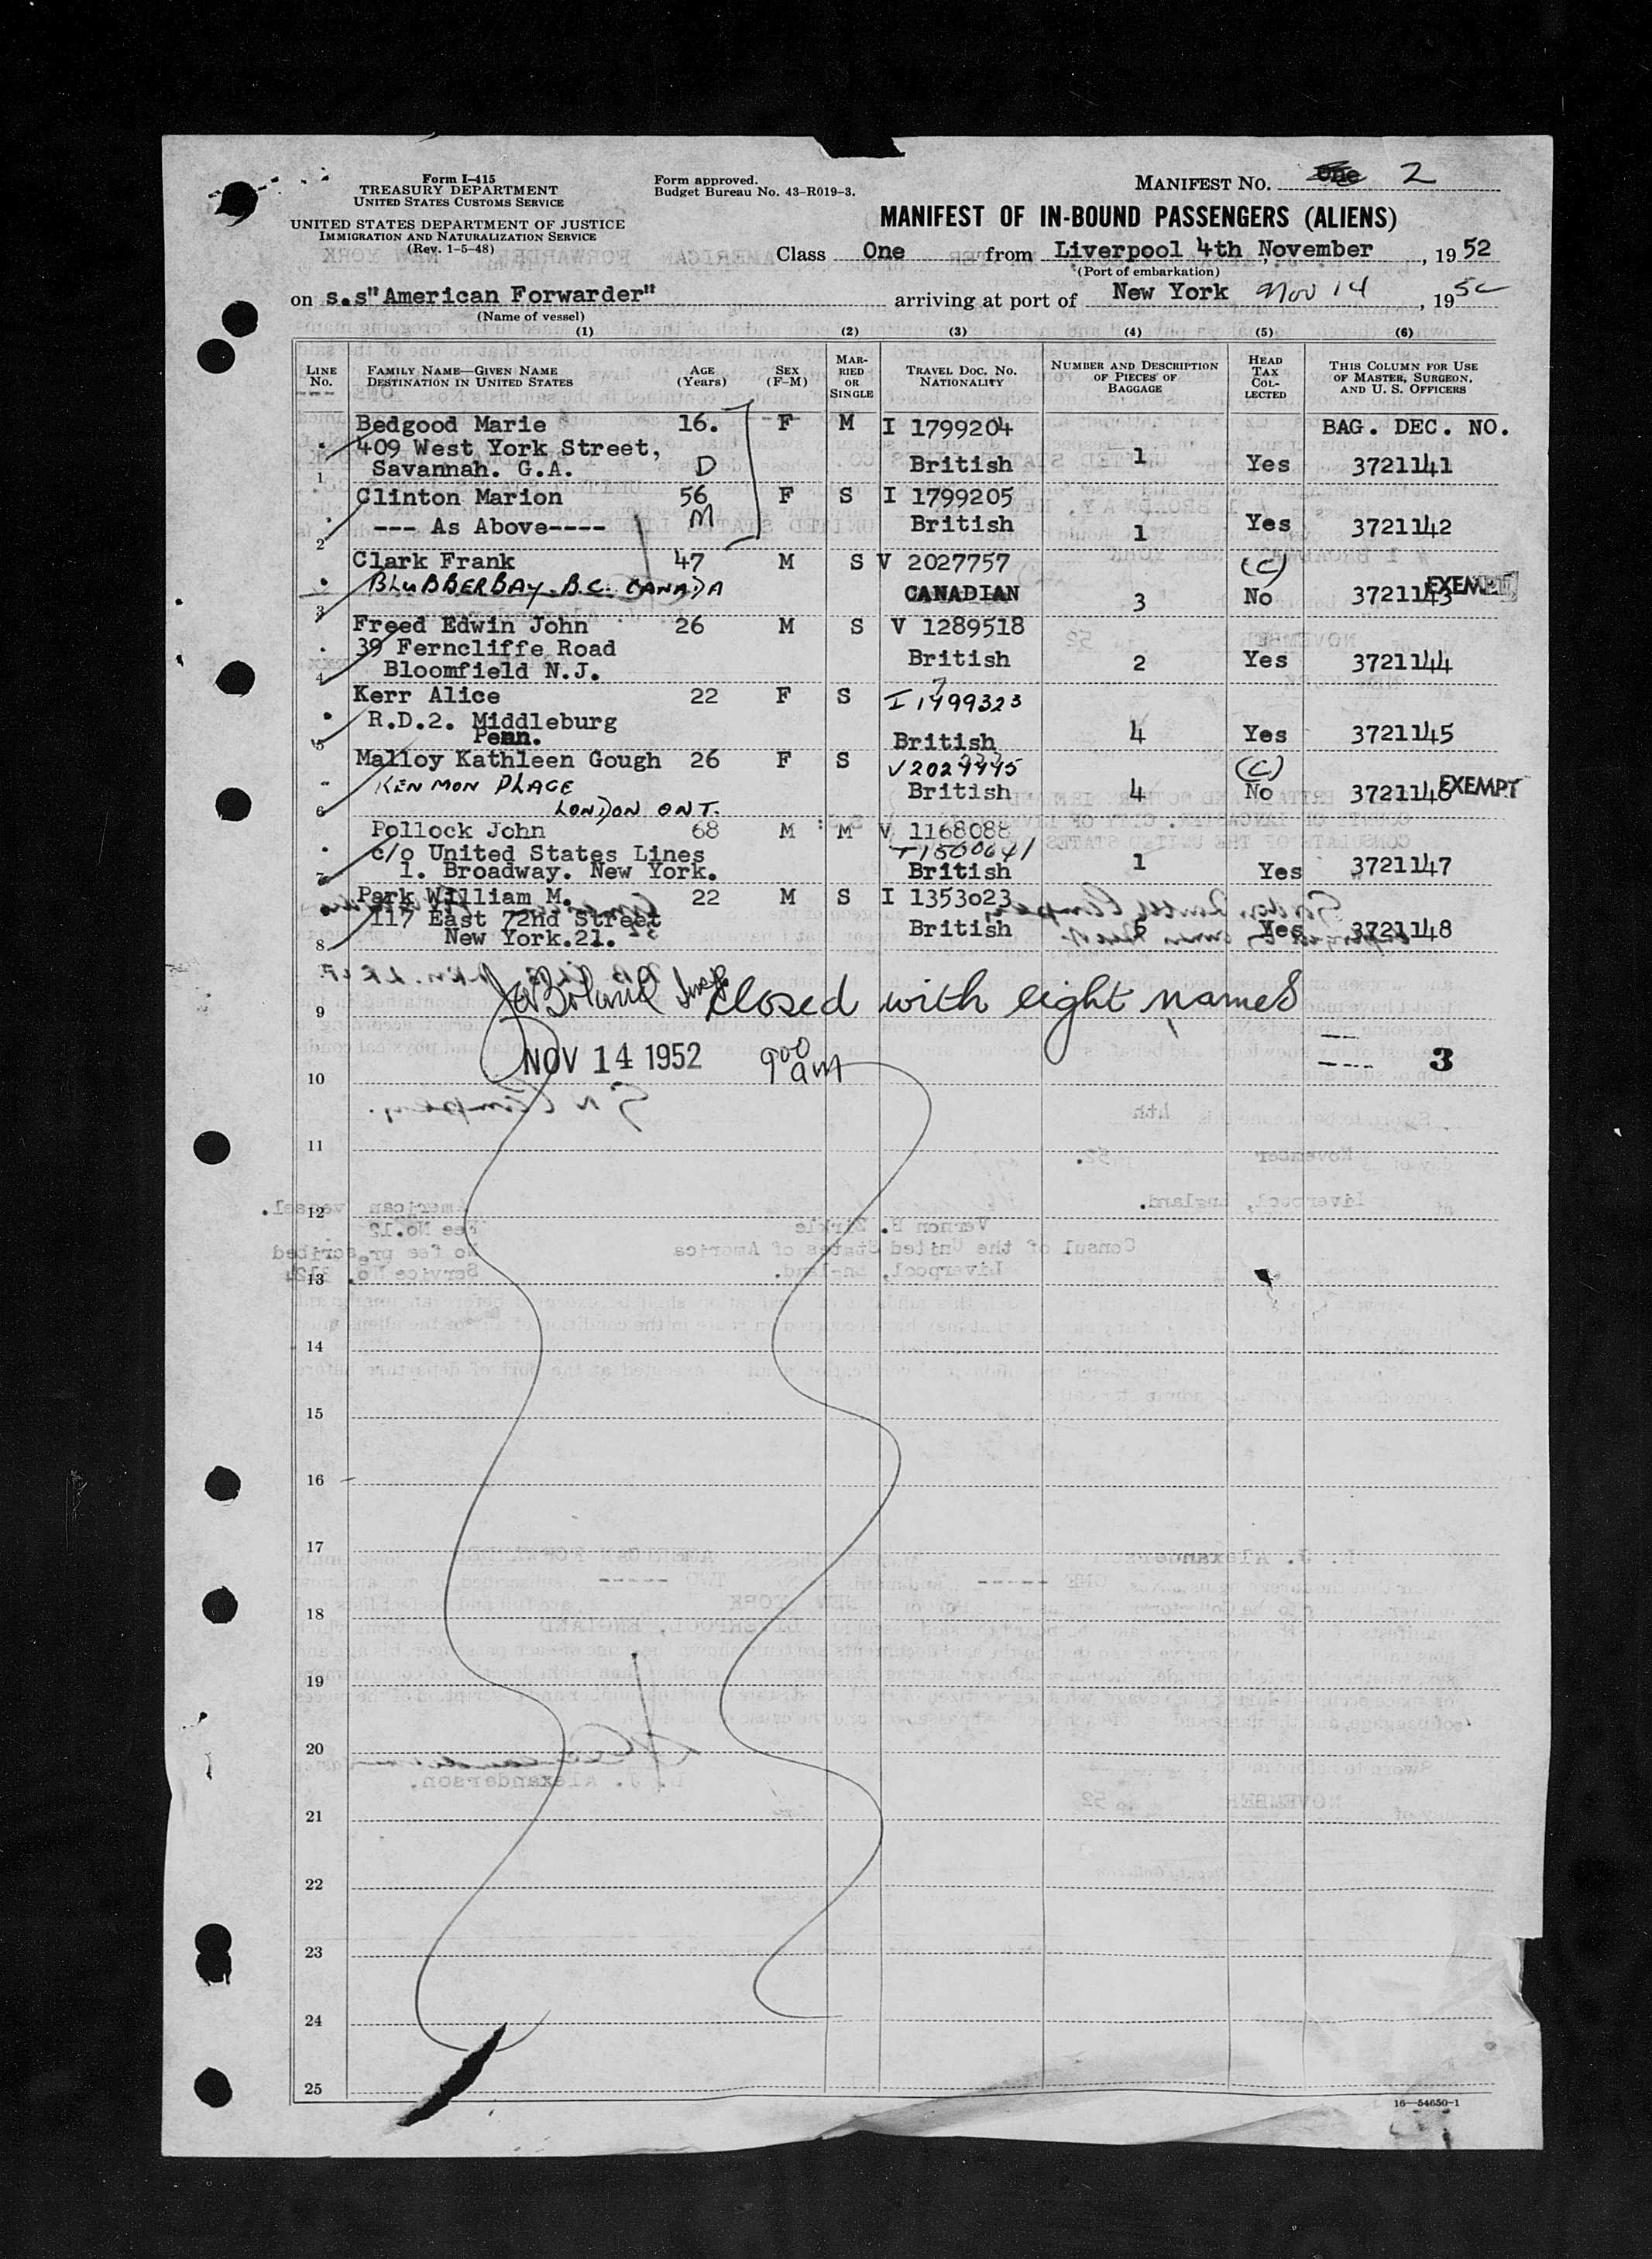 Form I-415
TREASURY DEPARTMENT
UNITED STATES CUSTOMS SERVICE
UNITED STATES DEPARTMENT OF JUSTICE
IMMIGRATION AND NATURALIZATION SERVICE
(Rev. 1-5-48)
Form approved.
Budget Bureau No. 43-R019-3.
MANIFEST NO. One 2
MANIFEST OF IN-BOUND PASSENGERS (ALIENS)
Class One from Liverpool 4th November, 1952
(Port of embarkation)
on s.s"American Forwarder" arriving at port of New York Nov 14, 1952
(Name of vessel)
(1) (2) (3) (4) (5) (6)
LINE No. FAMILY NAME—GIVEN NAME DESTINATION IN UNITED STATES AGE (Years) SEX (F-M) MARRIED OR SINGLE TRAVEL DOC. NO. NATIONALITY NUMBER AND DESCRIPTION OF PIECES OF BAGGAGE HEAD TAX COLLECTED THIS COLUMN FOR USE OF MASTER, SURGEON, AND U. S. OFFICERS
Bedgood Marie 16. F M I 1799204 BAG. DEC. NO.
409 West York Street,
1 Savannah. G.A. D British 1 Yes 3721141
Clinton Marion 56 F S I 1799205
2 --- As Above---- M British 1 Yes 3721142
Clark Frank 47 M S V 2027757 (C)
3 BLUBBERBAY. B.C. CANADA CANADIAN 3 No 3721143 EXEMPT
Freed Edwin John 26 M S V 1289518
39 Ferncliffe Road British 2 Yes 3721144
4 Bloomfield N.J.
Kerr Alice 22 F S I 1799323
R.D.2. Middleburg
5 Penn. British 4 Yes 3721145
Malloy Kathleen Gough 26 F S V2027775 (C)
KEN MON PLACE British 4 No 3721146 EXEMPT
6 LONDON ONT.
Pollock John 68 M M V 1168088
c/o United States Lines I1500641
7 1. Broadway. New York. British 1 Yes 3721147
Park William M. 22 M S I 1353023
117 East 72nd Street British 6 Yes 3721148
8 New York.21.
9 closed with eight names
10 NOV 14 1952 900 am 3
11
12
13
14
15
16
17
18
19
20
21
22
23
24
25
16—54650-1